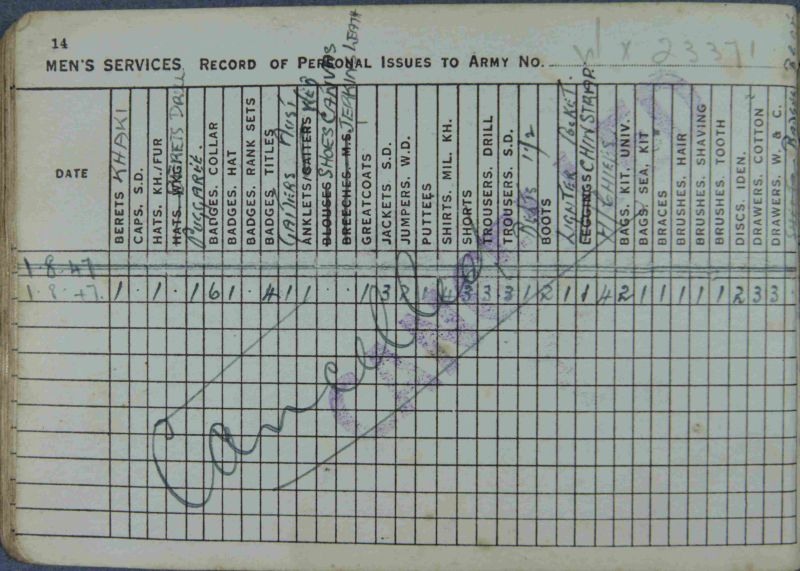 14
MEN'S SERVICES RECORD OF PERSONAL ISSUES TO ARMY NO. W X 23371
DATE
BERETS KHAKI
CAPS. S.D.
HATS. KH./FUR
HATS. JACKETS DRILL
PUGGAREE.
BADGES. COLLAR
BADGES. HAT
BADGES. RANK SETS
BADGES. TITLES
GAITERS AUST
ANKLETS/GAITERS WEB
BLOUSES SHOES CANVAS
BREECHES. M.S. JERKINS LEATH
GREATCOATS
JACKETS. S.D.
JUMPERS. W.D.
PUTTEES
SHIRTS. MIL. KH.
SHORTS
TROUSERS. DRILL
TROUSERS. S.D.
BELTS 1 1/2
BOOTS
LIGHTER POCKET.
LEGGINGS CHINSTRAP.
BAGS. KIT. UNIV.
BAGS. SEA. KIT
BRACES
BRUSHES. HAIR
BRUSHES. SHAVING
BRUSHES. TOOTH
DISCS. IDEN.
DRAWERS. COTTON
DRAWERS. W. & C.
1·8·47
1·8·47. 1 · 1 · 1 6 1 · 4 1 1 · · 1 3 2 1 · 3 3 3 1 2 1 1 4 2 1 1 1 1 1 2 3 3 ·
Cancelled